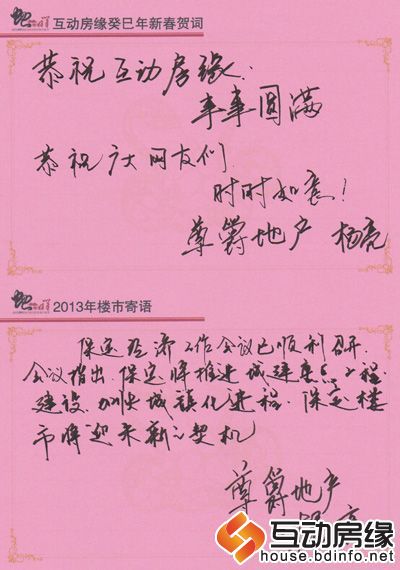 互动房缘癸巳年新春贺词
恭祝互动房缘:
事事圆满
恭祝广大网友们
时时如意!
尊爵地产 杨亮
2013年楼市寄语
保定经济工作会议已顺利召开.
会议指出.保定将推进城建重点工程
建设.加快城镇化进程.保定楼
市将迎来新的契机
尊爵地产
互动房缘
house.bdinfo.net